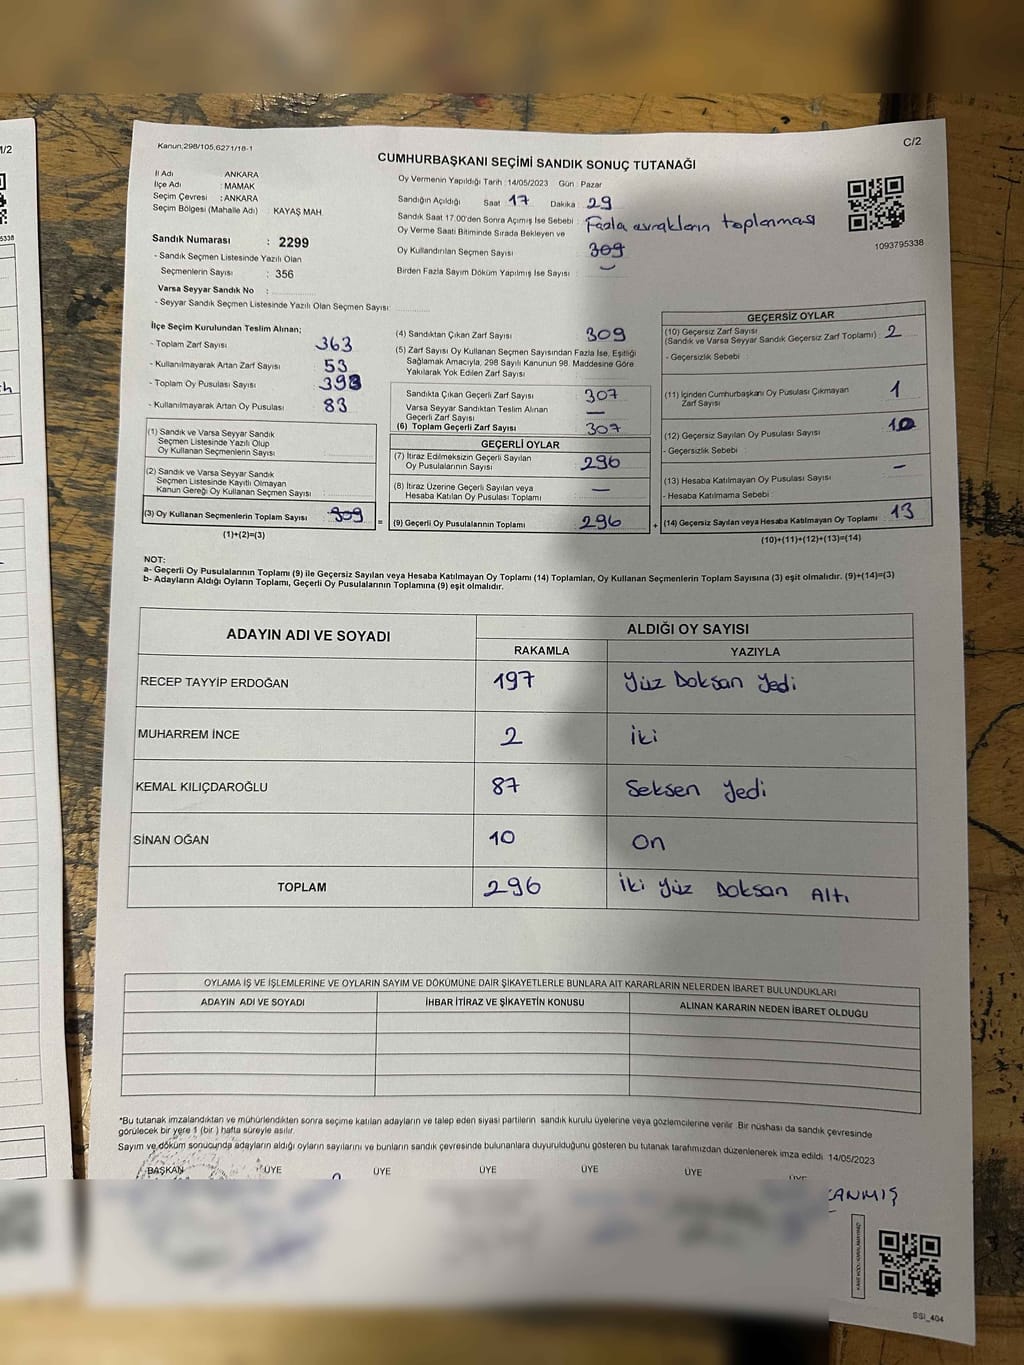 Kanun;298/105,6271/18-1
C/2
CUMHURBAŞKANI SEÇİMİ SANDIK SONUÇ TUTANAĞI
İl Adı : ANKARA
İlçe Adı : MAMAK
Seçim Çevresi : ANKARA
Seçim Bölgesi (Mahalle Adı) : KAYAŞ MAH.
Sandık Numarası : 2299
- Sandık Seçmen Listesinde Yazılı Olan
Seçmenlerin Sayısı : 356
Varsa Seyyar Sandık No :
- Seyyar Sandık Seçmen Listesinde Yazılı Olan Seçmen Sayısı
Oy Vermenin Yapıldığı Tarih : 14/05/2023 Gün : Pazar
Sandığın Açıldığı Saat 17 Dakika 29
Sandık Saat 17:00'den Sonra Açımış İse Sebebi : Fazla evrakların toplanması
Oy Verme Saati Bitiminde Sırada Bekleyen ve
Oy Kullandırılan Seçmen Sayısı 309
Birden Fazla Sayım Döküm Yapılmış İse Sayısı : –
1093795338
İlçe Seçim Kurulundan Teslim Alınan;
- Toplam Zarf Sayısı : 363
- Kullanılmayarak Artan Zarf Sayısı : 53
- Toplam Oy Pusulası Sayısı : 393
- Kullanılmayarak Artan Oy Pusulası : 83
(1) Sandık ve Varsa Seyyar Sandık
Seçmen Listesinde Yazılı Olup
Oy Kullanan Seçmenlerin Sayısı
(2) Sandık ve Varsa Seyyar Sandık
Seçmen Listesinde Kayıtlı Olmayan
Kanun Gereği Oy Kullanan Seçmen Sayısı :
(3) Oy Kullanan Seçmenlerin Toplam Sayısı 309
(1)+(2)=(3)
=
(4) Sandıktan Çıkan Zarf Sayısı 309
(5) Zarf Sayısı Oy Kullanan Seçmen Sayısından Fazla İse, Eşitliği
Sağlamak Amacıyla, 298 Sayılı Kanunun 98. Maddesine Göre
Yakılarak Yok Edilen Zarf Sayısı
Sandıkta Çıkan Geçerli Zarf Sayısı : 307
Varsa Seyyar Sandıktan Teslim Alınan
Geçerli Zarf Sayısı –
(6) Toplam Geçerli Zarf Sayısı : 307
GEÇERLİ OYLAR
(7) İtiraz Edilmeksizin Geçerli Sayılan
Oy Pusulalarının Sayısı : 296
(8) İtiraz Üzerine Geçerli Sayılan veya
Hesaba Katılan Oy Pusulası Toplamı : –
(9) Geçerli Oy Pusulalarının Toplamı : 296
+
GEÇERSİZ OYLAR
(10) Geçersiz Zarf Sayısı
(Sandık ve Varsa Seyyar Sandık Geçersiz Zarf Toplamı) : 2
- Geçersizlik Sebebi :
(11) İçinden Cumhurbaşkanı Oy Pusulası Çıkmayan
Zarf Sayısı 1
(12) Geçersiz Sayılan Oy Pusulası Sayısı 10
- Geçersizlik Sebebi :
(13) Hesaba Katılmayan Oy Pusulası Sayısı –
- Hesaba Katılmama Sebebi :
(14) Geçersiz Sayılan veya Hesaba Katılmayan Oy Toplamı 13
(10)+(11)+(12)+(13)=(14)
NOT:
a- Geçerli Oy Pusulalarının Toplamı (9) ile Geçersiz Sayılan veya Hesaba Katılmayan Oy Toplamı (14) Toplamları, Oy Kullanan Seçmenlerin Toplam Sayısına (3) eşit olmalıdır. (9)+(14)=(3)
b- Adayların Aldığı Oyların Toplamı, Geçerli Oy Pusulalarının Toplamına (9) eşit olmalıdır.
ADAYIN ADI VE SOYADI
ALDIĞI OY SAYISI
RAKAMLA YAZIYLA
RECEP TAYYİP ERDOĞAN 197 Yüz Doksan Yedi
MUHARREM İNCE 2 İki
KEMAL KILIÇDAROĞLU 87 Seksen Yedi
SİNAN OĞAN 10 On
TOPLAM 296 İki Yüz Doksan Altı
OYLAMA İŞ VE İŞLEMLERİNE VE OYLARIN SAYIM VE DÖKÜMÜNE DAİR ŞİKAYETLERLE BUNLARA AİT KARARLARIN NELERDEN İBARET BULUNDUKLARI
ADAYIN ADI VE SOYADI İHBAR İTİRAZ VE ŞİKAYETİN KONUSU ALINAN KARARIN NEDEN İBARET OLDUĞU
*Bu tutanak imzalandıktan ve mühürlendikten sonra seçime katılan adayların ve talep eden siyasi partilerin sandık kurulu üyelerine veya gözlemcilerine verilir. Bir nüshası da sandık çevresinde
görülecek bir yere 1 (bir ) hafta süreyle asılır.
Sayım ve döküm sonucunda adayların aldığı oyların sayılarını ve bunların sandık çevresinde bulunanlara duyurulduğunu gösteren bu tutanak tarafımızdan düzenlenerek imza edildi. 14/05/2023
BAŞKAN ÜYE ÜYE ÜYE ÜYE ÜYE ÜYE
SSI_404